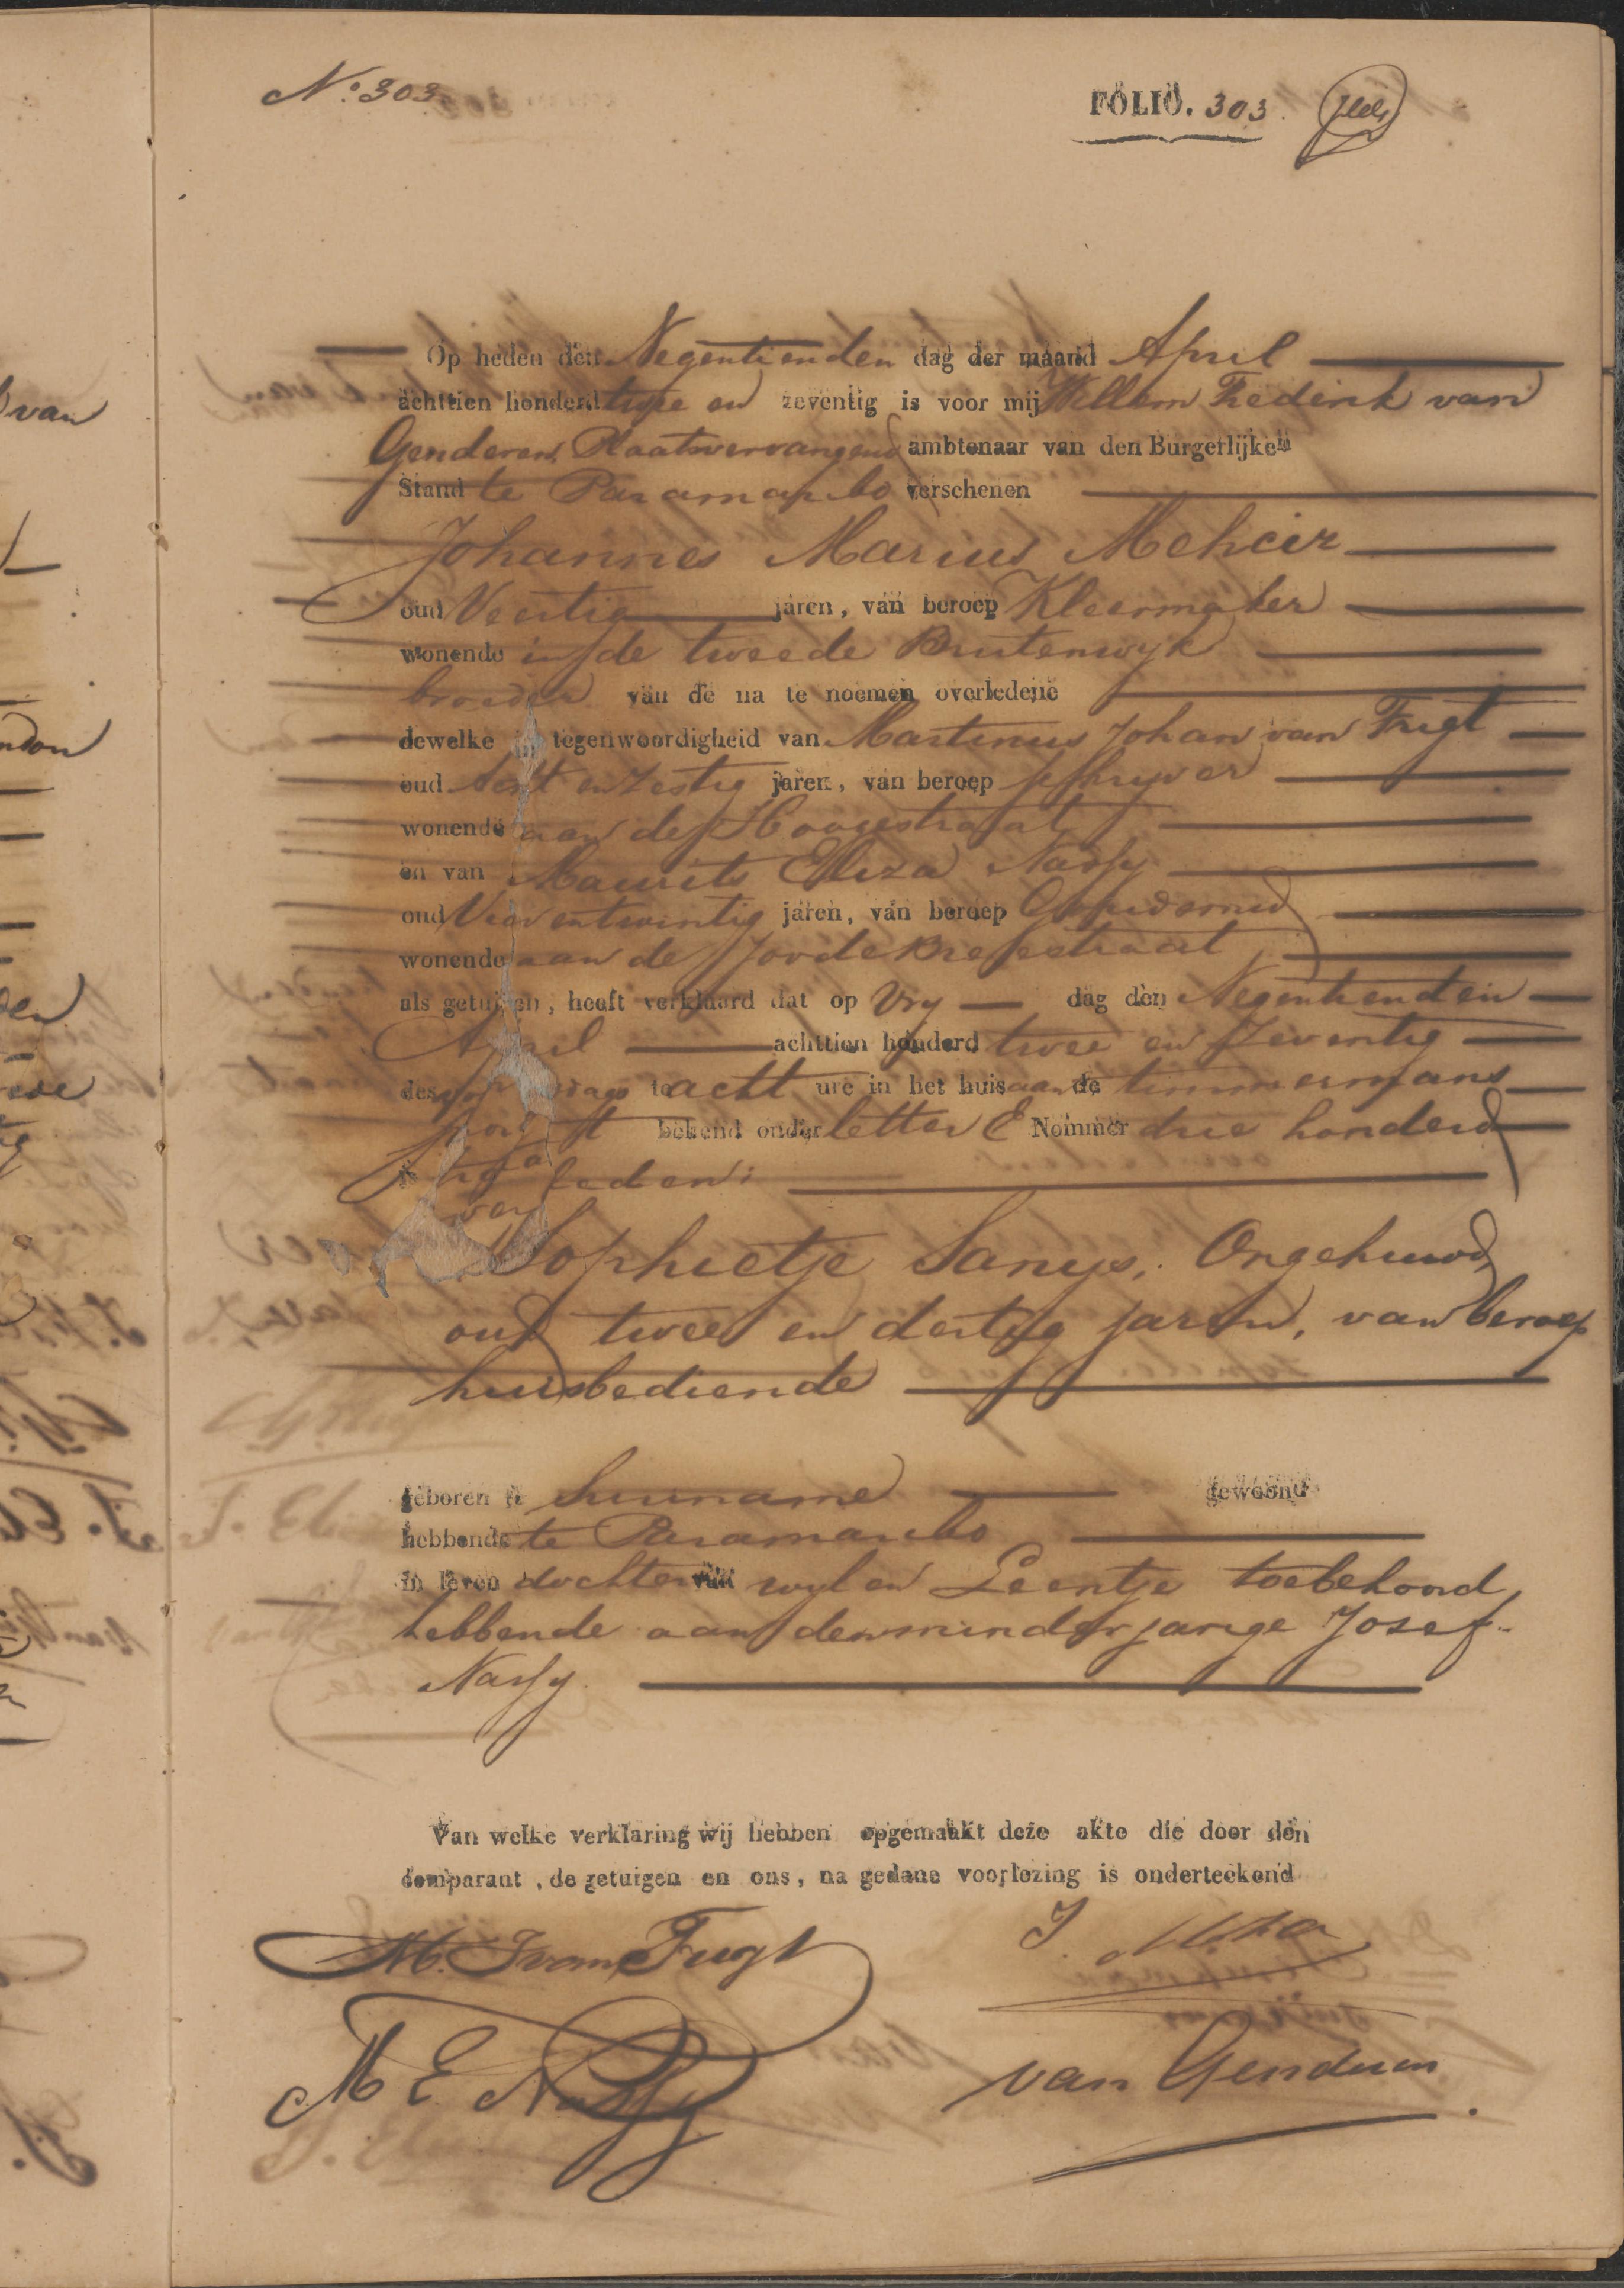 No. 303
FOLIO. 303.
Op heden den Negentienden dag der maand April
achttien honderd twee en zeventig is voor mij Willem Frederik van
Genderen, Plaatsvervangend ambtenaar van den Burgerlijken
Stand te Paramaribo verschenen
Johannes Marius
oud Veertig jaren, van beroep Kleermaker
wonende in de tweede Buitenwyk
broeder van de na te noemen overledene
dewelke in tegenwoordigheid van Martinus Johan van Frugt
oud acht en zestig jaren, van beroep schryver
wonende aan de Hoogestraat
en van Maurits Eliza Nassy
oud Vier en twintig jaren, van beroep Goudsmid
wonende aan de Joodebreestraat
als getuigen, heeft verklaard dat op Vry dag den Negentienden
April achttien honderd twee en zeventig
des dags te acht ure in het huis aan de timmermans
bekend onder letter E Nommer drie honderd
leden:
Sophietje Sanys, Ongehuwd,
oud twee en dertig jaren, van beroep
huisbediende
geboren te Suriname gewoond
hebbende te Paramaribo
in leven dochter van wylen Leentje toebehoord
hebbende aan den minderjarige Josef
Nassy
Van welke verklaring wij hebben opgemaakt deze akte die door den
comparant, de getuigen en ons, na gedane voorlezing is onderteekend
M. J. van Frugt
J.
M E Nassy
van Genderen.